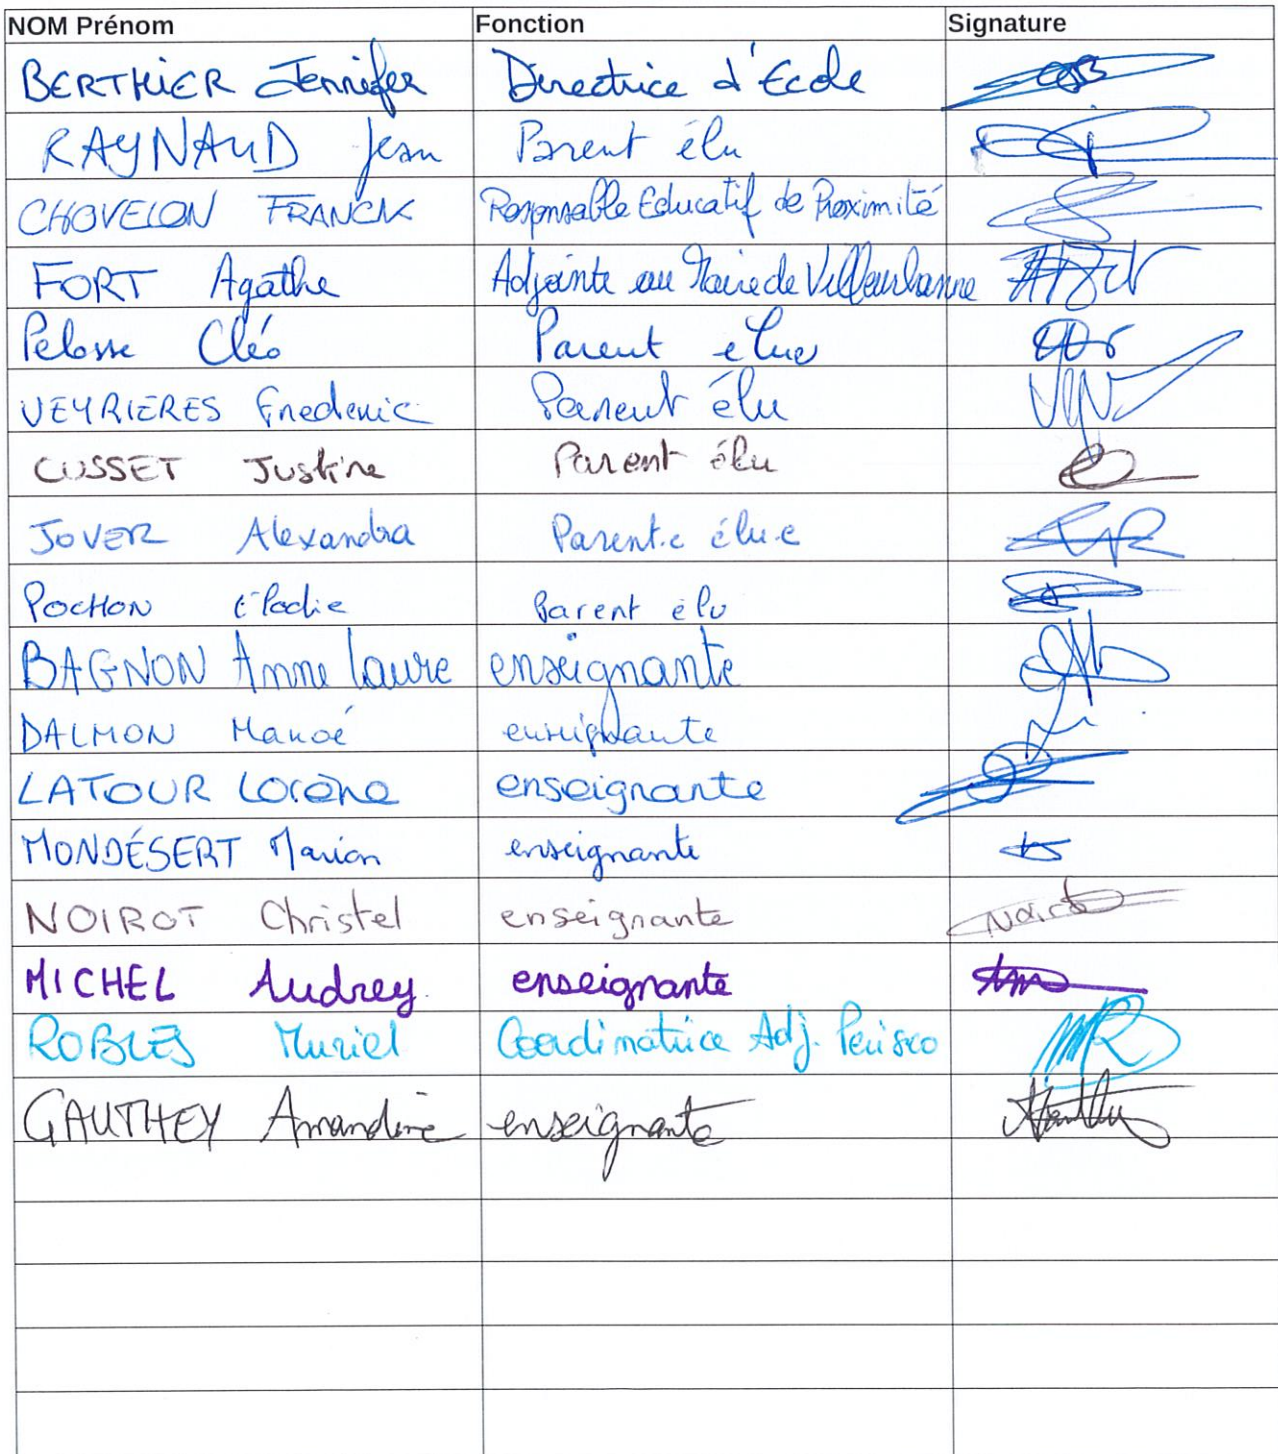 NOM Prénom Fonction Signature
BERTHIER Jennifer Directrice d'Ecole
RAYNAUD Jean Parent élu
CHOVELON FRANCK Responsable Educatif de Proximité
FORT Agathe Adjointe au Maire de Villeurbanne
Pelosse Cléo Parent elue
VEYRIERES Frederic Parent élu
CUSSET Justine Parent élu
JOVER Alexandra Parent.e élu.e
POCHON Elodie Parent élu
BAGNON Anne Laure enseignante
DALMON Manoé enseignante
LATOUR Lorène enseignante
MONDÉSERT Marion enseignante
NOIROT Christel enseignante Noirot
MICHEL Audrey enseignante
ROBLES Muriel Coordinatrice Adj. Périsco
GAUTHEY Amandine enseignante